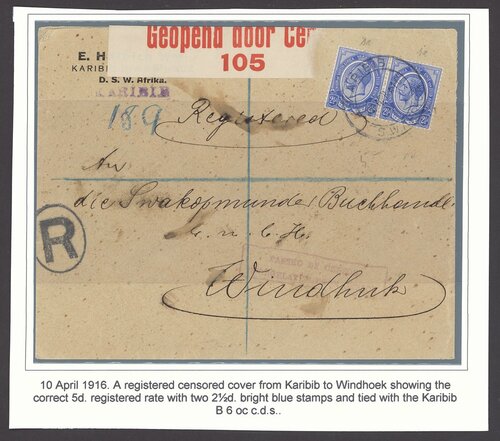 Geopend door Cen
105
E. H
KARIBIB
D. S. W. Afrika.
KARIBIB
189
Registered
An
die Swakopmunder Buchhandl.
G. m. b. H.
R
PASSED BY CENSOR
Windhuk
10 April 1916. A registered censored cover from Karibib to Windhoek showing the
correct 5d. registered rate with two 2½d. bright blue stamps and tied with the Karibib
B 6 oc c.d.s..